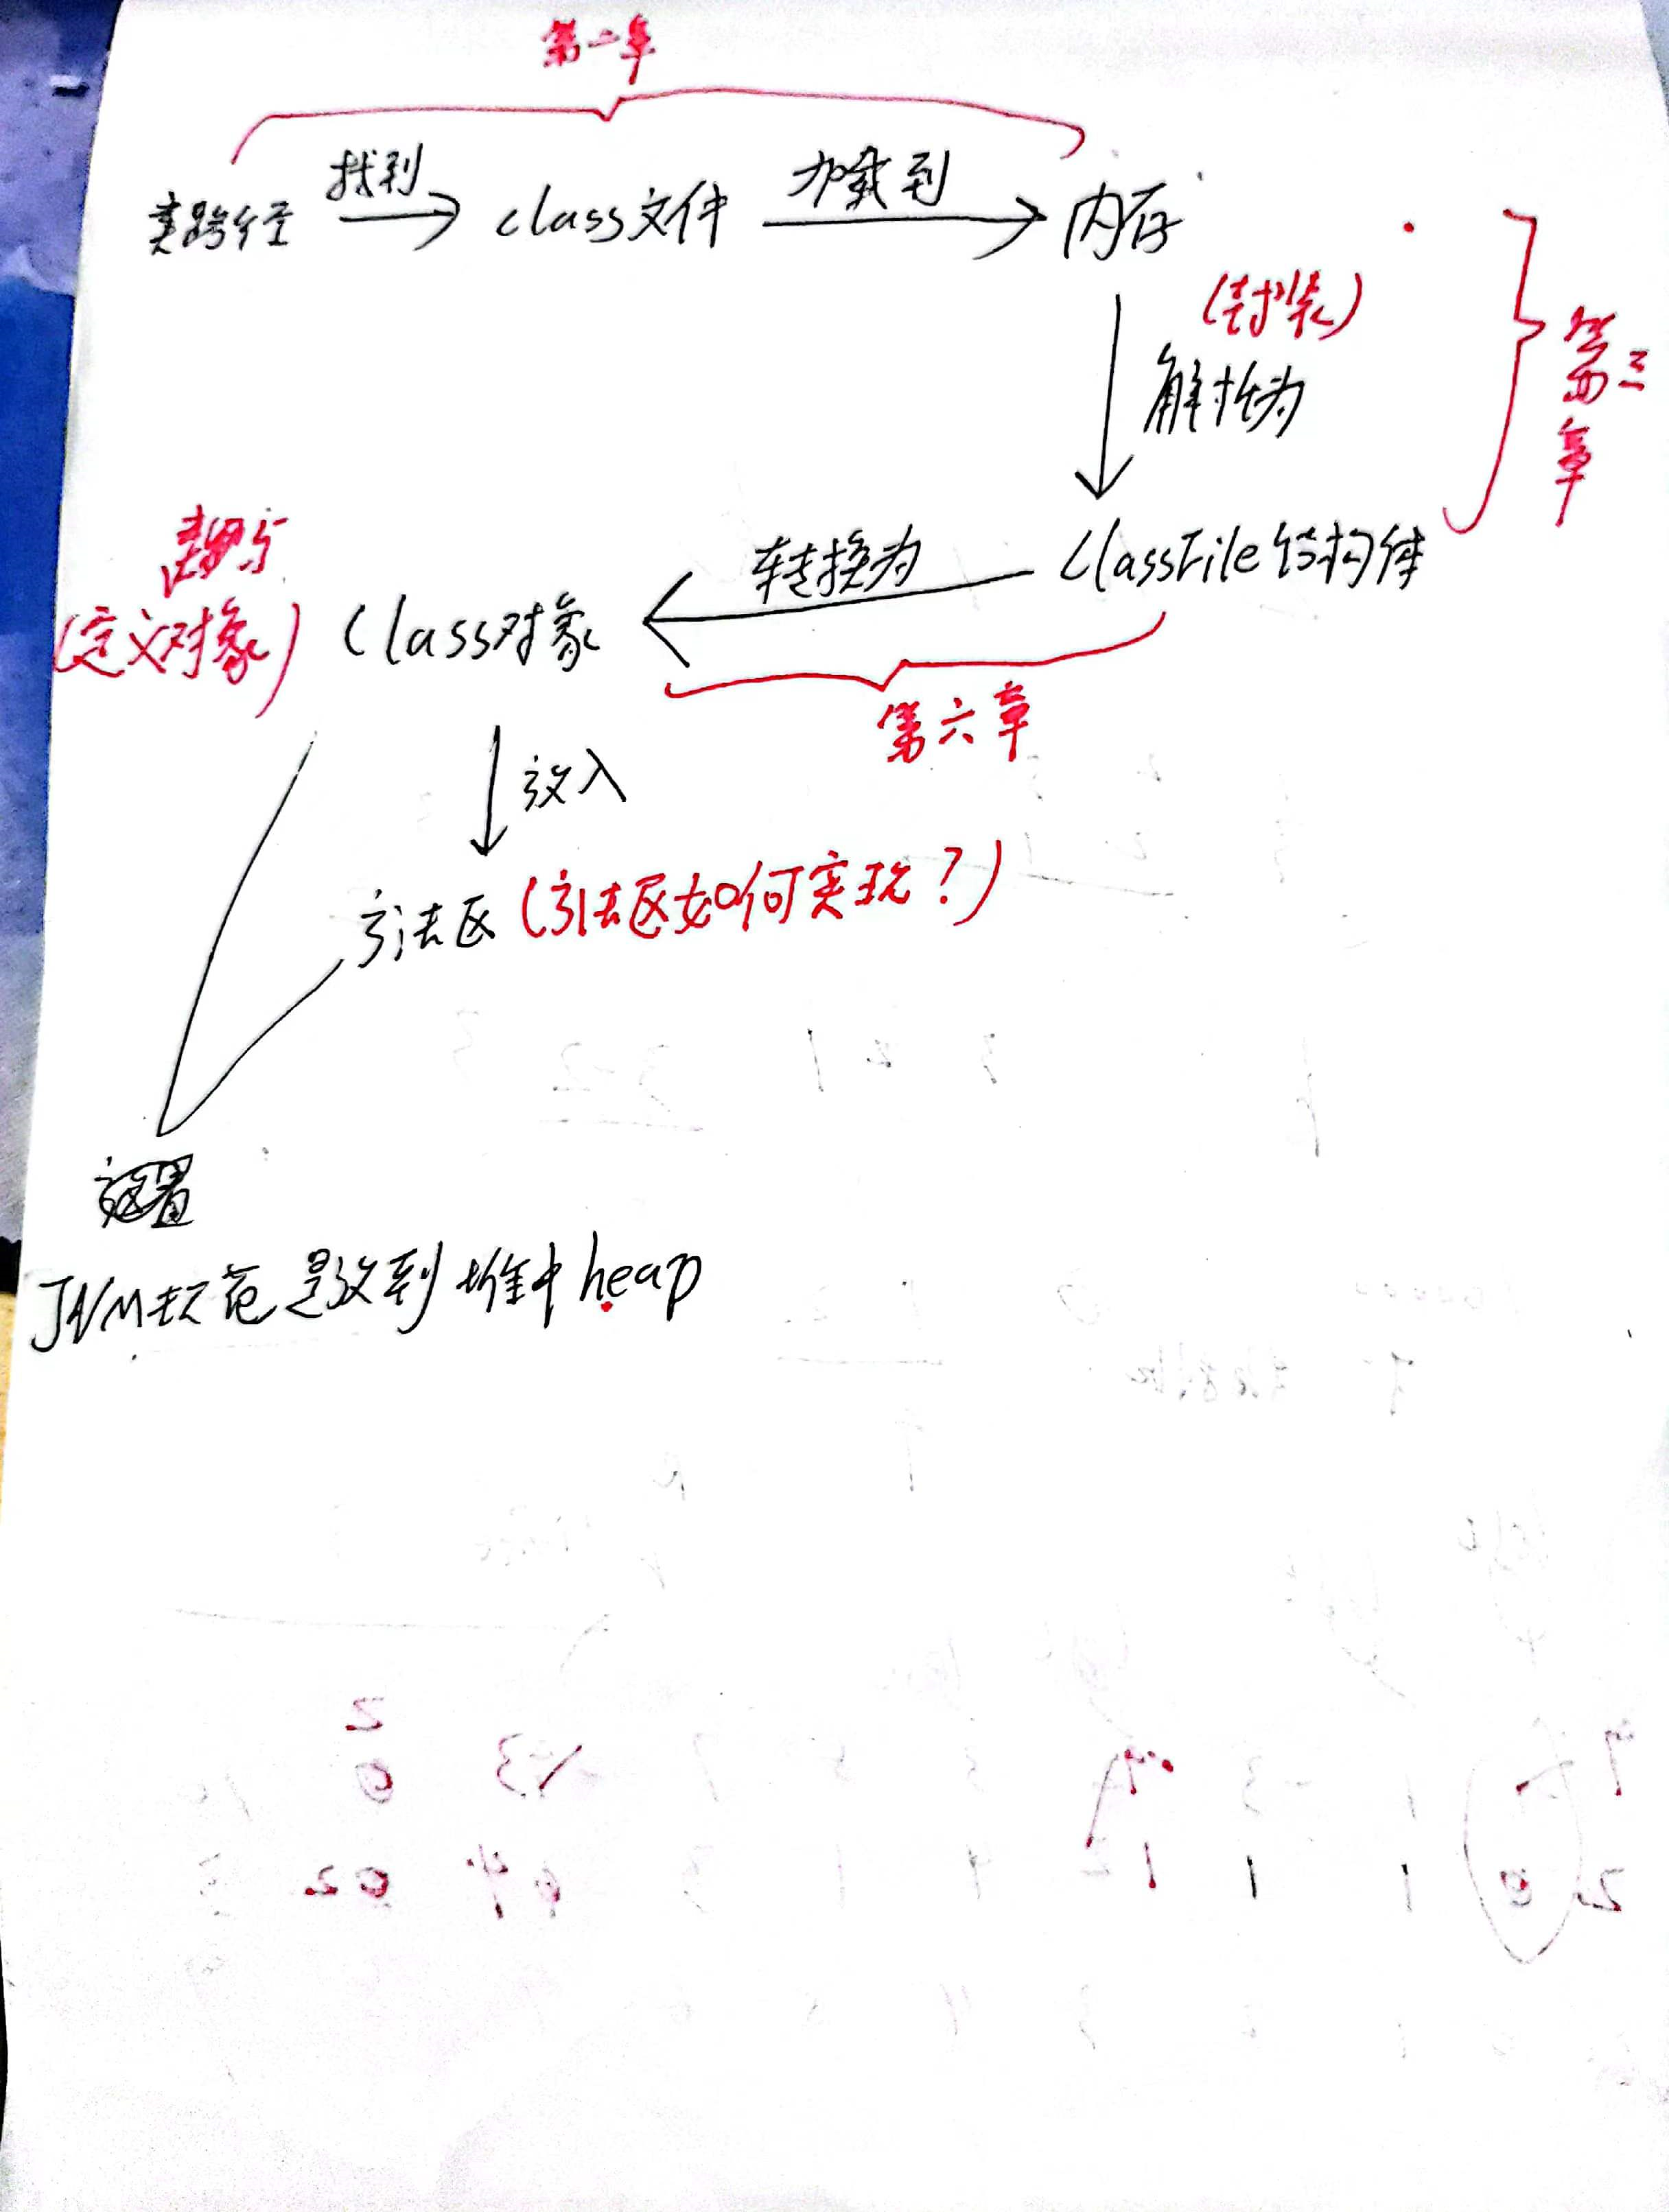 第二章
类路径 找到 class文件 加载到 内存
(封装)
解析为
第三章
ClassFile结构体
转换为
Class对象
(定义对象)
第六章
放入
方法区 (方法区如何实现?)
放置
JVM规范是放到堆中heap